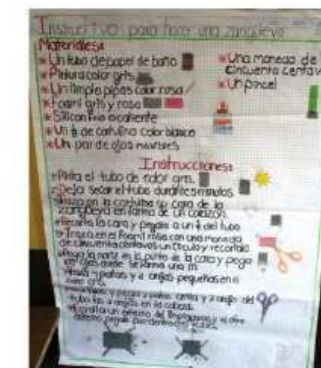 Instructivo para hacer una zarigüeya
Materiales:
Un tubo de papel de baño
Pintura color gris
Un limpia pipas color rosa
Foami gris y rosa
Silicon frio o caliente
Un ⅛ de cartulina color blanco
Un par de ojos movibles
Una moneda de
cincuenta centav
Un pincel
Instrucciones:
Pinta el tubo de color gris.
Deja secar el tubo durante 5 minutos
Traza en la cartulina la cara de la
zarigüeya en forma de un corazón.
Recorta la cara y pegala a un del tubo
Traza en el foami rosa con una moneda
de cincuenta centavos un círculo y recortalo
Pega la nariz en la punta de la cara y pega
los ojos donde se forma una m.
4 patas y 2 orejas pequeñas en el
foami gris.
y pega 2 patas arriba y 2 abajo del
tubo las 2 orejas en la cabeza.
un extremo del limpiapipas y el otro
extremo pegalo por dentro del tubo.